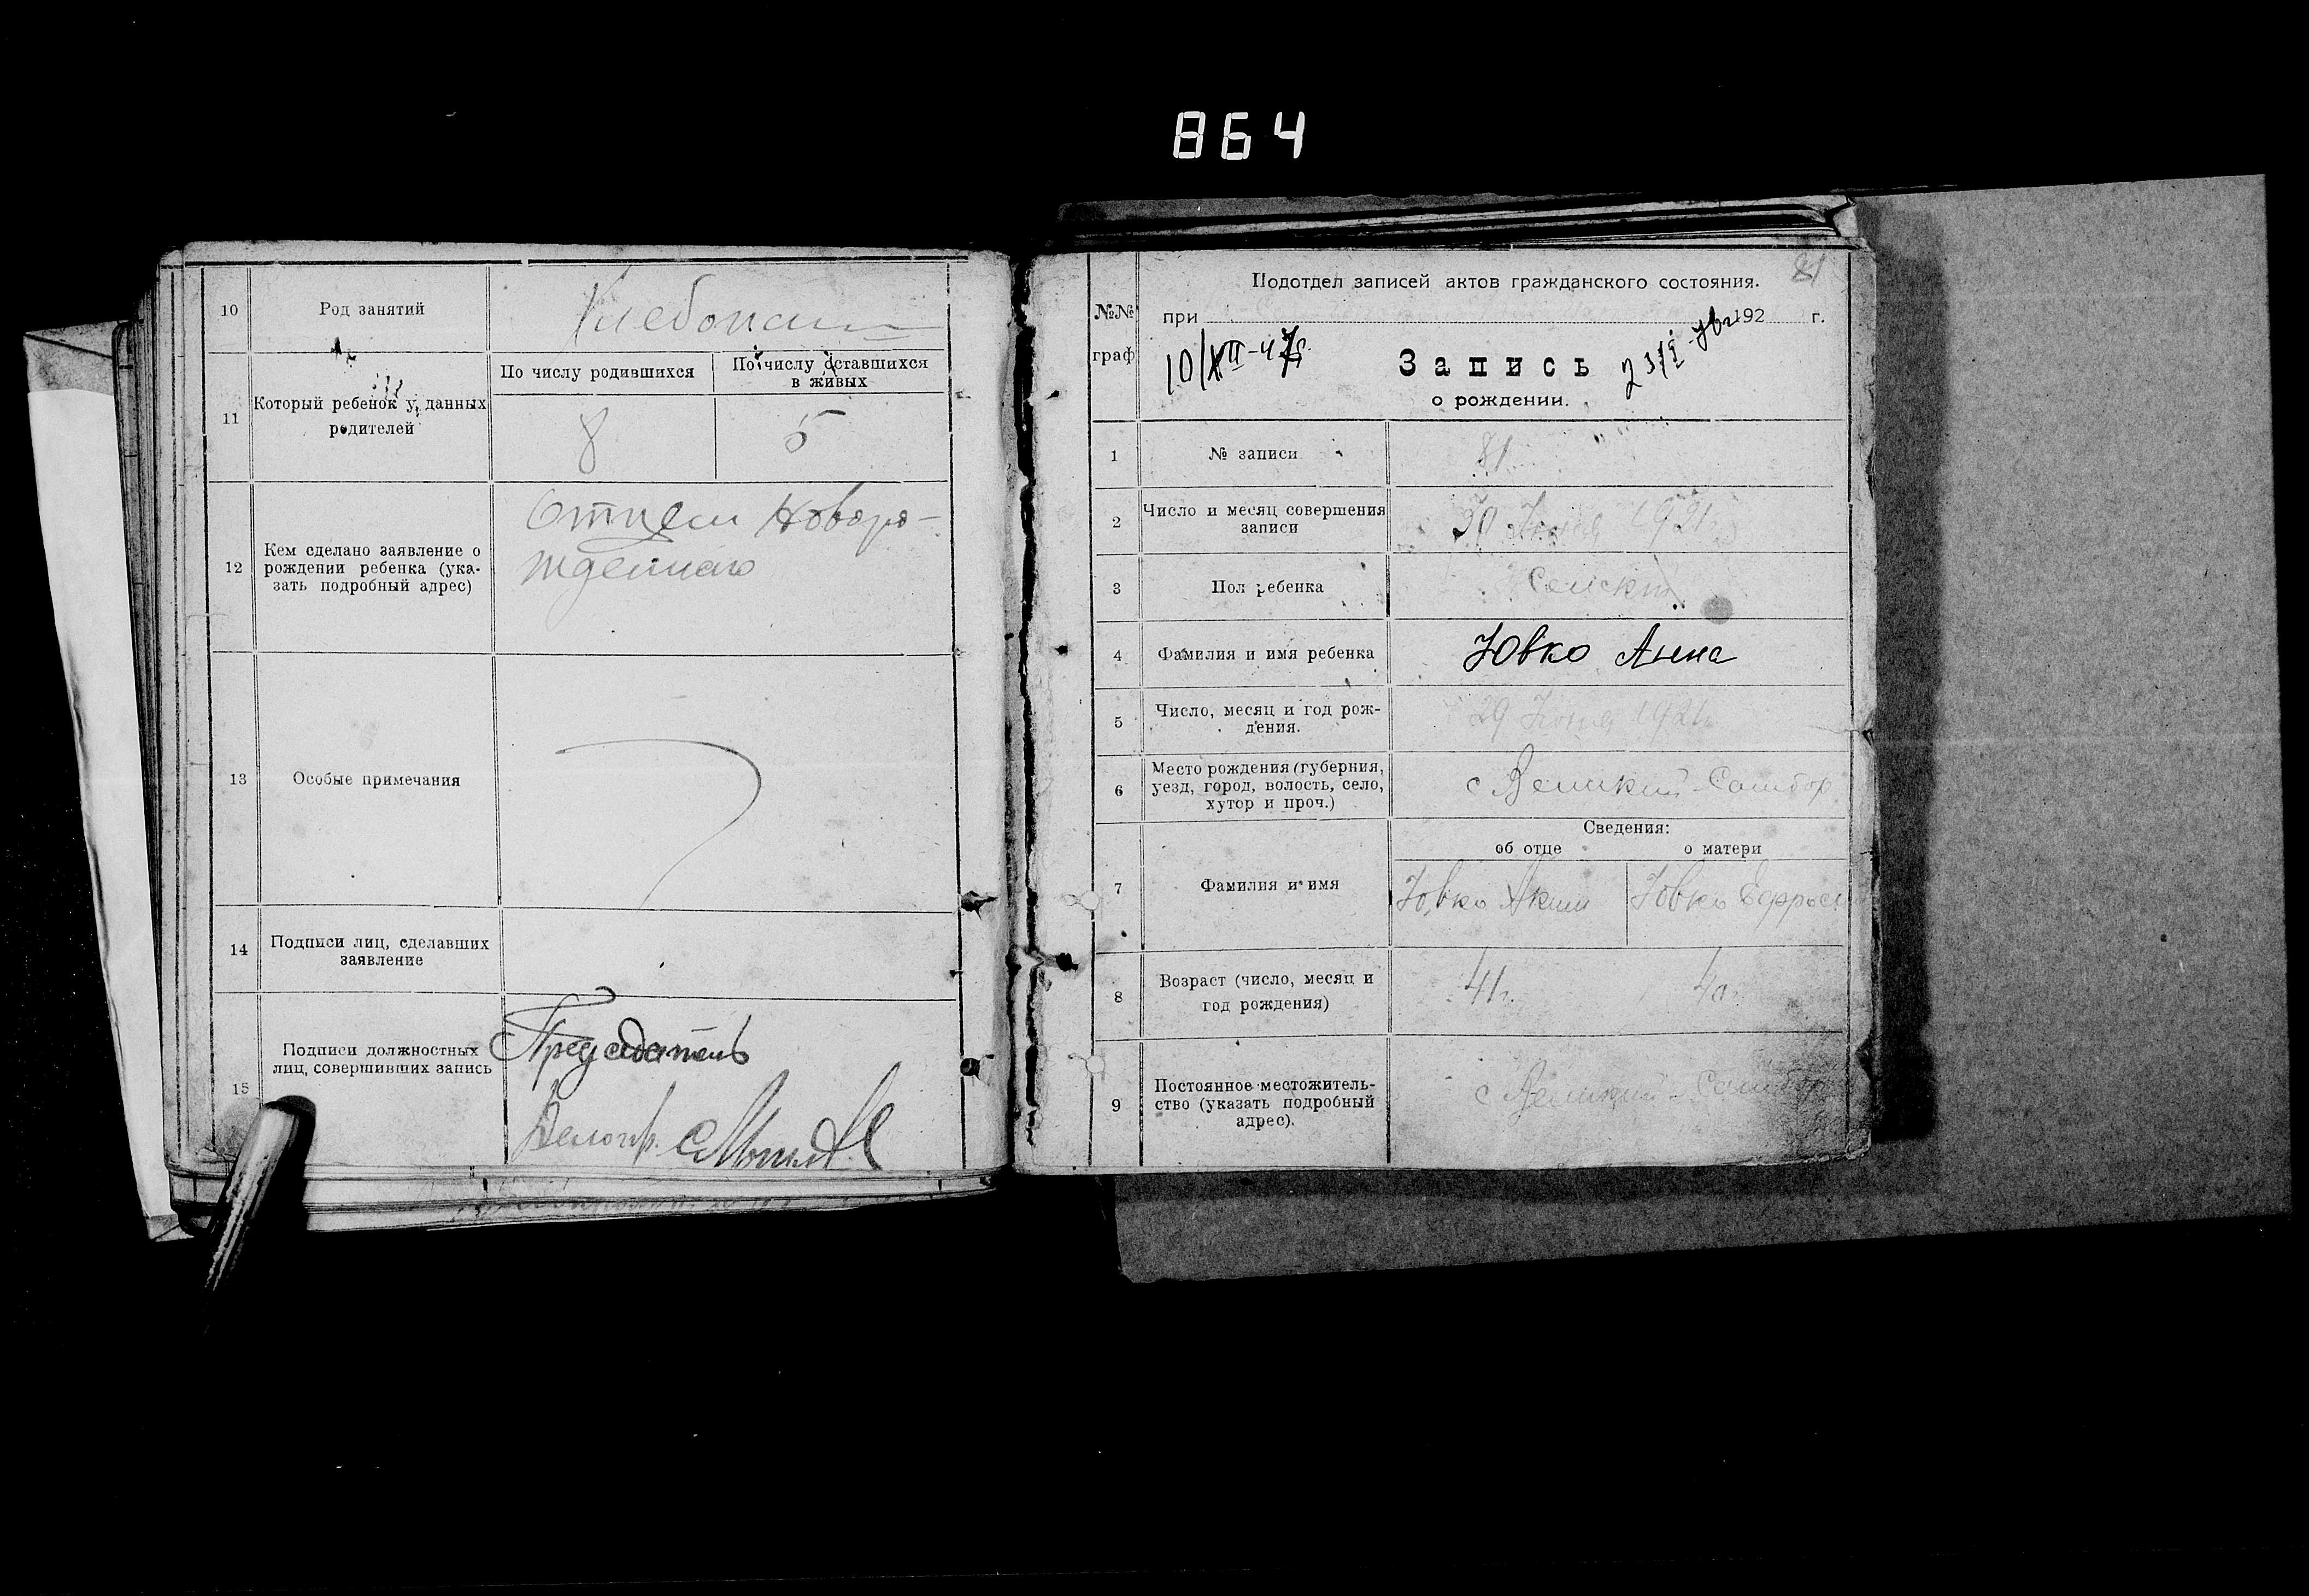 864
10
Род занятий
Хлебопашец
11
Который ребенок у данных
родителей
По числу родившихся
По числу оставшихся
в живых
8
5
12
Кем сделано заявление о
рождении ребенка (ука-
зать подробный адрес)
Отцем Новоро-
жденнаго
13
Особые примечания
14
Подписи лиц, сделавших
заявление
15
Подписи должностных
лиц, совершивших запись
Председатель
Делопр.
81
Подотдел записей актов гражданского состояния.
№№
граф
при 192 г.
10/XII-47г.
Запись
о рождении.
1
№ записи
81
2
Число и месяц совершения
записи
30 Июня 1921
3
Пол ребенка
Женский
4
Фамилия и имя ребенка
Ювко Анна
5
Число, месяц и год рож-
дения.
29 Июня 1921г.
6
Место рождения (губерния,
уезд, город, волость, село,
хутор и проч.)
с Великий-Самбор
Сведения:
об отце
о матери
7
Фамилия и имя
Ювко Аким
Ювко
8
Возраст (число, месяц и
год рождения)
41г.
40г.
9
Постоянное местожитель-
ство (указать подробный
адрес).
с Великий-Самбор